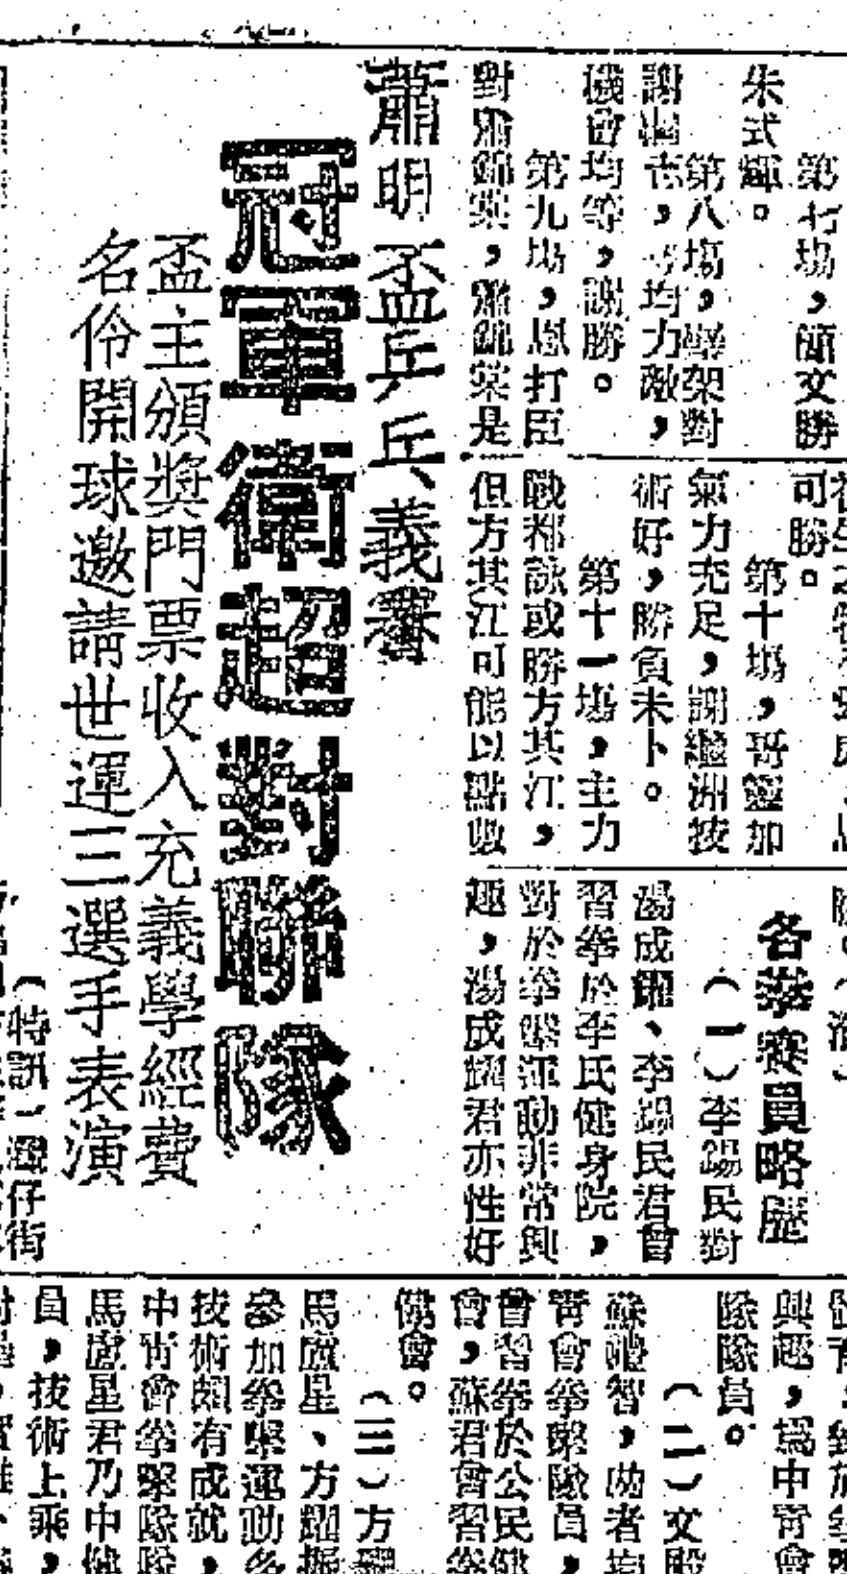 第七場，簡文勝
朱式輝。
第八場，學架對
謝國志，均力敵，
機會均等，謝勝。
第九場，恩打臣
對蕭錦棠，蕭錦棠是
可勝。
第十場，哥靈加
氣力充足，謝繼洲技
術好，勝負未卜。
第十一場，主力
戰都詠或勝方其江，
但方其江可能以點數
各拳賽員略歷
（一）李錫民對
湯成耀、李錫民君曾
習拳於李氏健身院，
對於拳擊運動非常興
趣，湯成耀君亦性好
蕭明盃乒乓義賽
冠軍衛超對聯隊
盃主頒獎門票收入充義學經費
名伶開球邀請世運三選手表演
（特訊）灣仔街
興趣，為中青會
隊隊員。
（二）文
蘇禮智，兩者均
青會拳擊隊員，
曾習拳於公民健
會，蘇君曾習拳
健會。
（三）方耀
馬盧星、方耀振
參加拳擊運動多
技術頗有成就，
中青會拳擊隊隊
馬盧星君乃中健
員，技術上乘，